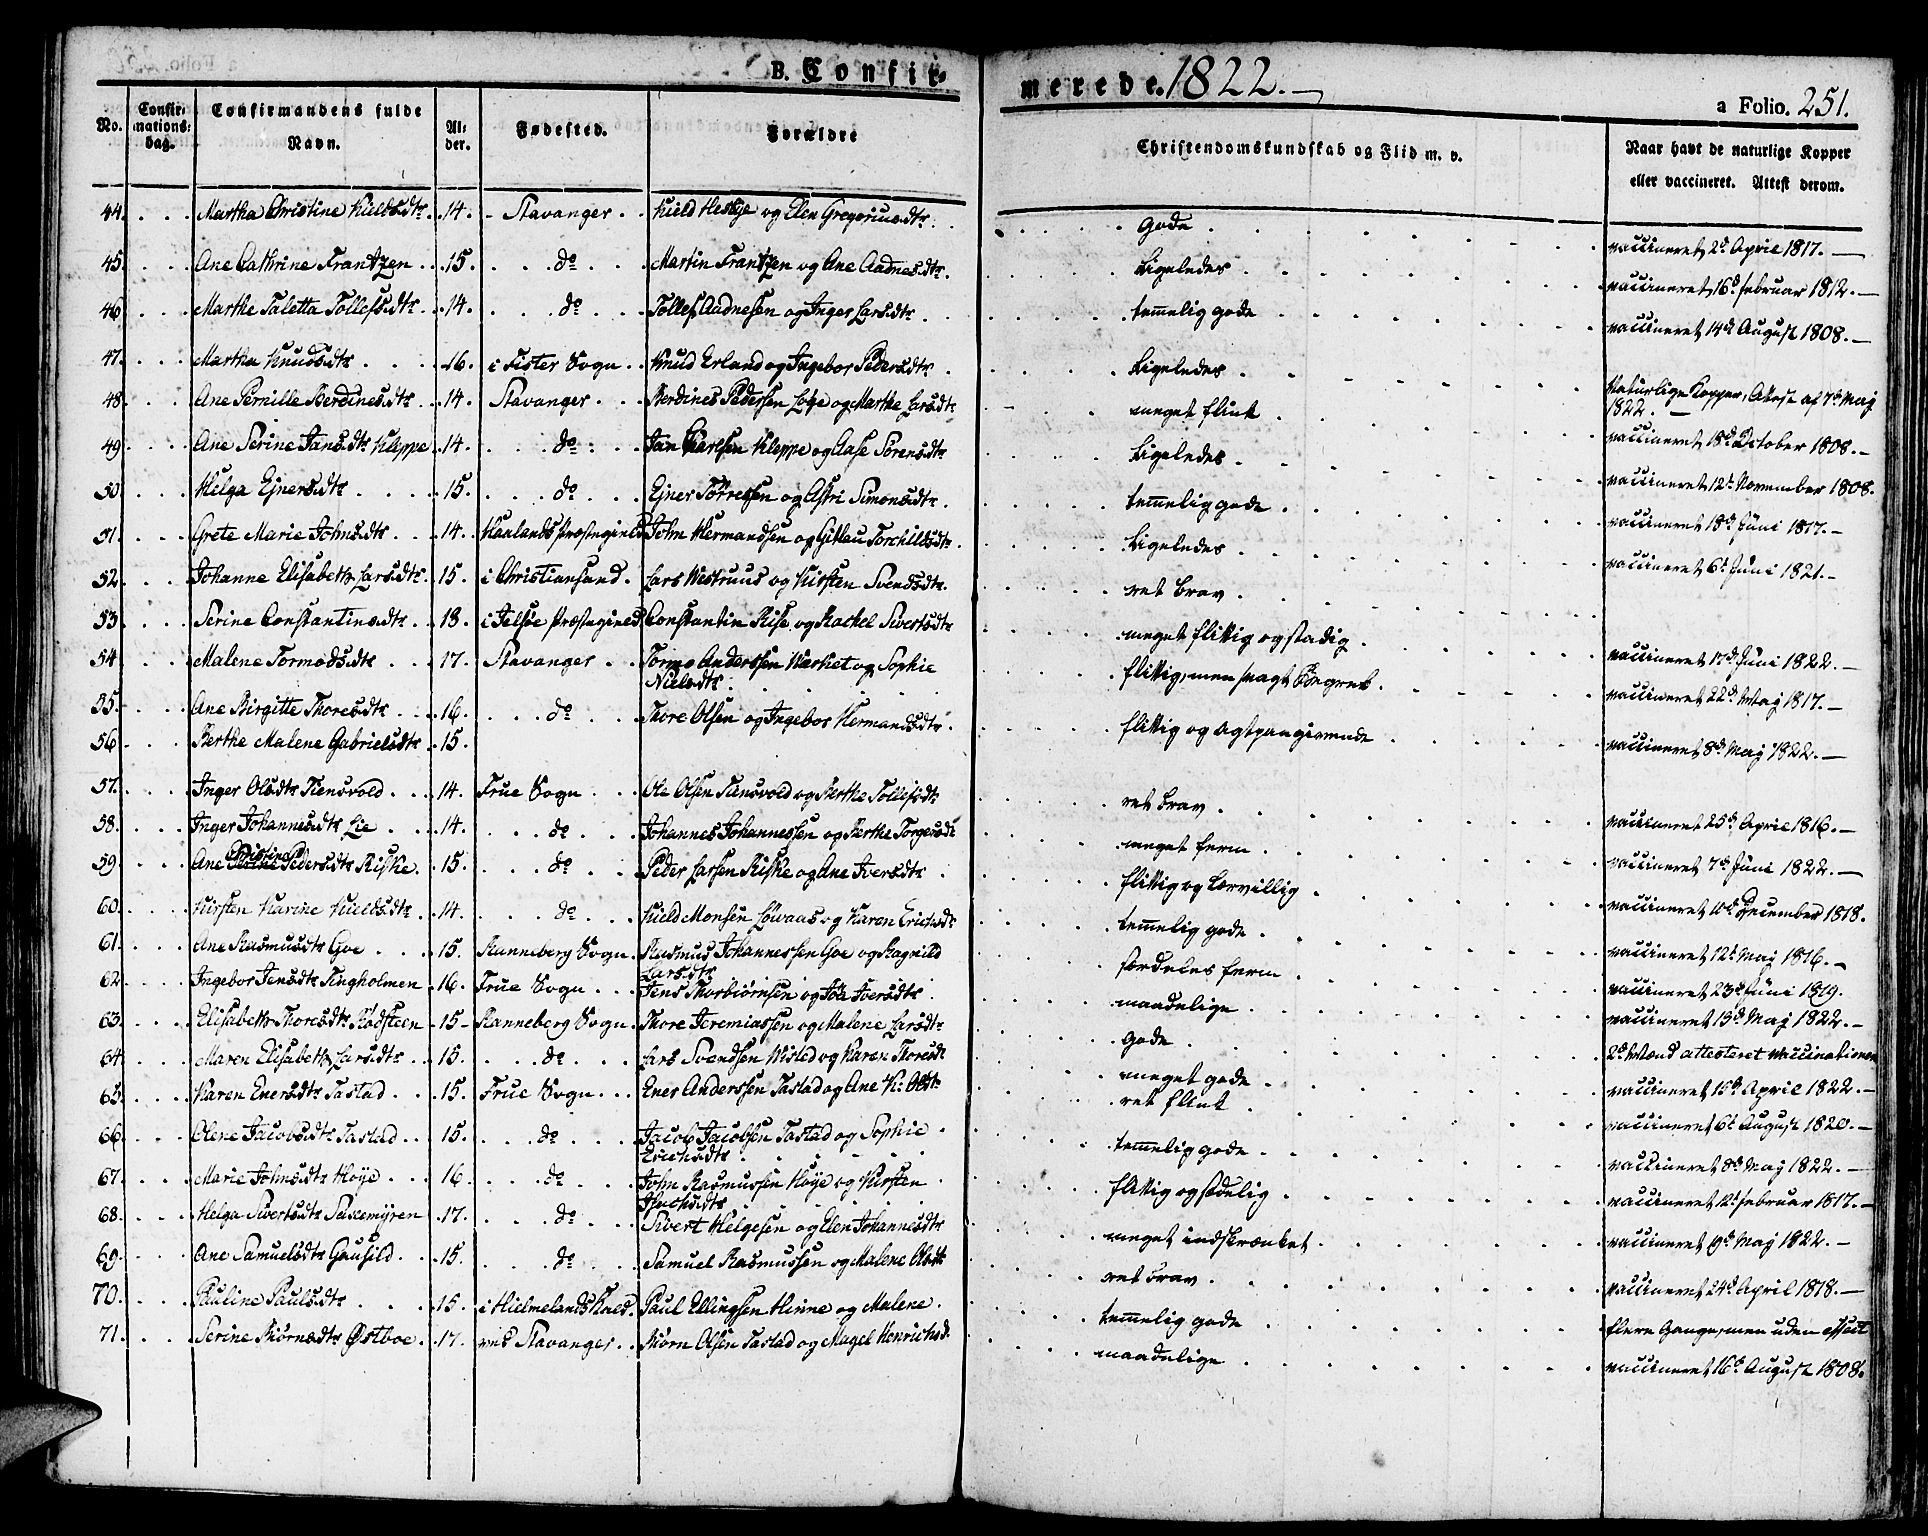 B. Confir-
merede. 1822.
a Folio. 251.
No.
Confir-
mations-
dag.
Confirmandens fulde
Navn.
Al-
der.
Fødested.
Forældre
Christendomskundskab og Flid m. v.
Naar havt de naturlige Kopper
eller vaccineret. Attest derom.
44. Martha Christine Kieldsdtr. 14. Stavanger Kield Heskje og Elen Gregoriusdtr. gode vaccineret 2d April 1817.
45. Ane Cathrine Frantzen 15. do Martin Frantzen og Ane Aadnesdtr. Ligeledes vaccineret 16d Februar 1812.
46. Marthe Taletta Tollefsdtr. 14. do Tollef Aadnesen og Inger Larsdtr temmelig gode vaccineret 14d August 1808.
47. Martha Knudsdtr 16. i Fister Sogn Knud Erland og Ingebor Pedersdtr Ligeledes
48. Ane Pernille Berdinesdtr 14. Stavanger Berdines Pedersen Løge og Marthe Larsdtr meget flink Naturlige Kopper, Attest af 7d May
1822.
49. Ane Serine Jansdtr Kleppe 14. do Jan Carlsen Kleppe og Aase Sørensdtr Ligeledes vaccineret 18d October 1808.
50. Helga Ejnersdtr 15. do Ejner Tørresen og Astri Simonsdtr. temmelig gode vaccineret 12t November 1808.
51. Grete Marie Johnsdtr 14. Haalands Præstegield John Hermandsen og Gitlau Torchildsdtr. Ligeledes vaccineret 18d Juni 1817.
52. Johanne Elisabeth Larsdtr. 15. i Christiansand. Lars Westruus og Kirsten Svendsdtr. ret brav vaccineret 6t Juni 1821.
53. Serine Constantinsdtr. 18. i Jelsøe Præstegield Constantin Rise og Rachel Sivertsdtr meget flittig og stadig
54. Malene Tormodsdtr 17. Stavanger Tormo Anderssen Warhet og Sophie
Nielsdtr. flittig, men svagt Begreb. vaccineret 17d Juni 1822.
55. Ane Birgitte Thoresdtr 16. do Thore Olsen og Ingebor Hermandsdtr. flittig og agtpaagivende vaccineret 22d May 1817.
56. Berthe Malene Gabrielsdtr 15. vaccineret 8d May 1822.
57. Inger Olsdtr Tiensvold 14. Frue Sogn Ole Olsen Tiensvold og Berthe Tollefsdtr ret brav vaccineret 25d April 1816.
58. Inger Johannesdtr Lie 14. do Johannes Johannessen og Berthe Torgersdt meget ferm vaccineret 7d Juni 1822.
59. Ane Christine Pedersdtr Riske. 15. do Peder Larsen Riske og Ane Iversdtr flittig og lærvillig vaccineret 10d December 1818.
60. Kirsten Karine Kieldsdtr 14. do Kield Monsen Løvaas og Karen Erichsdtr temmelig gode
61. Ane Rasmusdtr Goe 15. Ranneberg Sogn. Rasmus Johannessen Goe og Ragnild
Larsdtr fordeles ferm vaccineret 12t May 1816.
62. Ingebor Jensdtr Tingholmen 16. Frue Sogn Jens Thorbiørnsen og Iöa Iversdtr maadelige vaccineret 23d Juni 1819.
63. Elisabeth Thoresdtr Rødsteen 15. Ranneberg Sogn. Thore Jeremiassen og Malene Larsdtr gode vaccineret 13d May 1822.
64. Maren Elisabeth Larsdtr 15. do Lars Svendsen Wisted og Karen Thoresdt meget gode 2d Mænd attesteret Vaccinationen
65. Karen Enersdtr Tastad 15. Frue Sogn Ener Anderssen Tastad og Ane K: Olsdtr ret flink vaccineret 15d April 1822.
66. Olene Jacobsdtr Tastad 15. do Jacob Jacobsen Tastad og Sophie
Erichsdtr temmelig gode vaccineret 6t August 1820.
67. Marie Johnsdtr Høye 16. do John Rasmussen Høye og Kirsten
flittig og sædelig vaccineret 8d May 1822.
68. Helga Sivertsdtr Saxemyren 17. do Sivert Helgesen og Elen Johannesdtr meget indskrænket vaccineret 12t Februar 1817.
69. Ane Samuelsdtr Gausild 15. do Samuel Rasmussen og Malene Olsdtr ret brav vaccineret 9d May 1822.
70. Pauline Paulsdtr 15. i Hielmelands Præst. Paul Ellingsen Hinne og Malene temmelig gode vaccineret 24d April 1818.
71. Serine Biørnsdtr Østboe 17. ved Stavanger Biørn Olsen Tastad og Magel Henrichsd. maadelige flere Gange, men uden effect
vaccineret 16d August 1808.